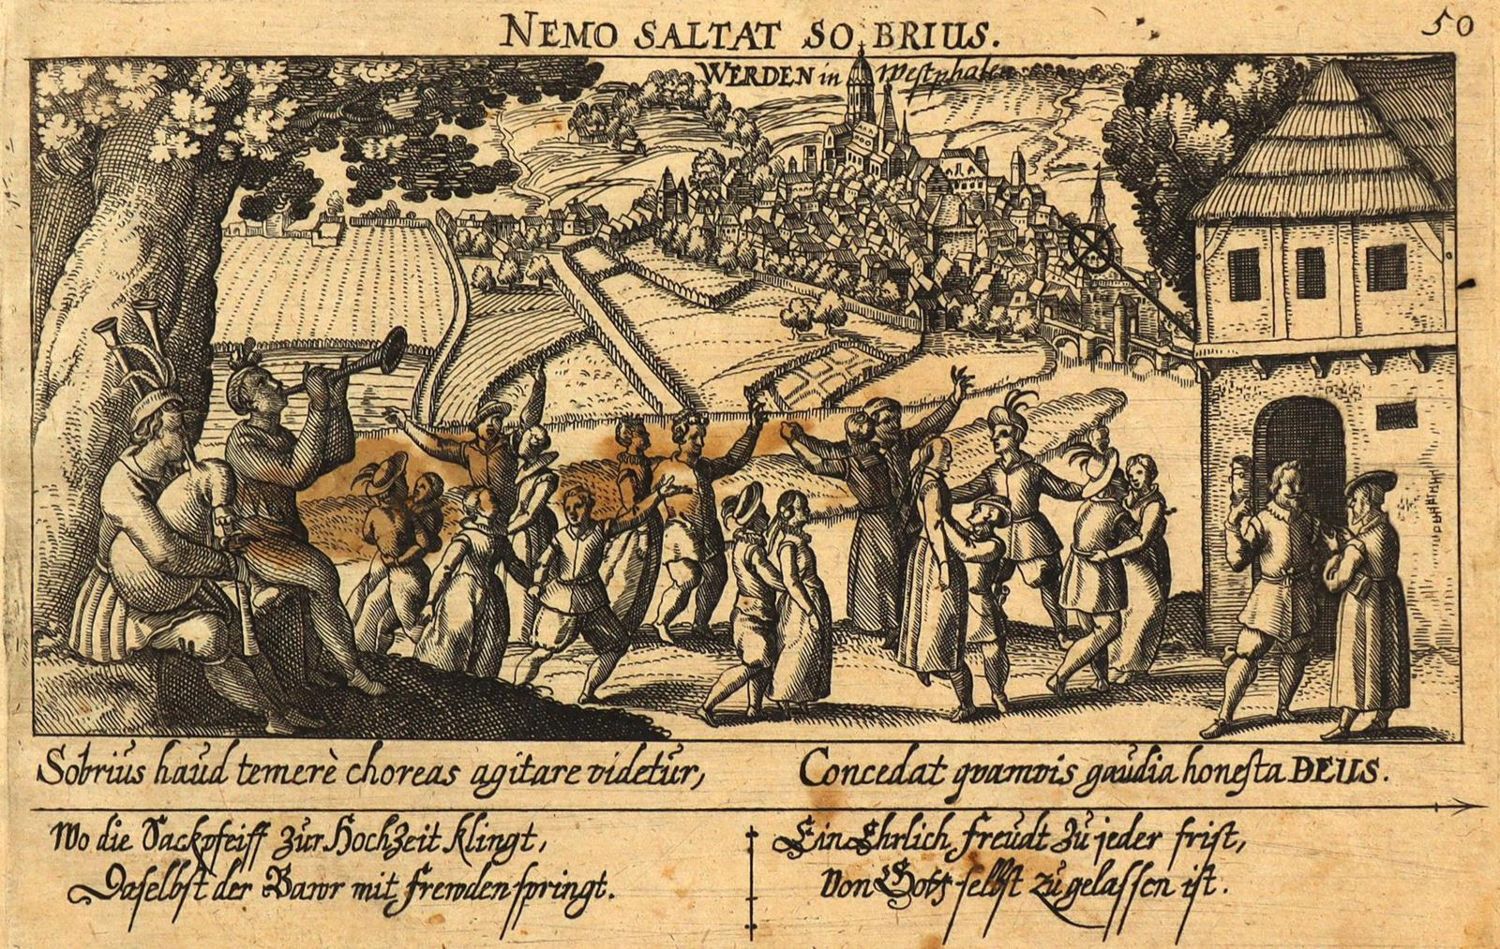 NEMO SALTAT SOBRIUS.
50
WERDEN in Westphalen
Sobrius haud temerè choreas agitare videtur,
Concedat qvamvis gaudia honesta DEUS.
Wo die Sackpfeiff zur Hochzeit klingt,
Daselbst der Bawr mit frewden springt.
Ein Ehrlich freudt zu jeder frist,
Von Gott selbst zugelassen ist.